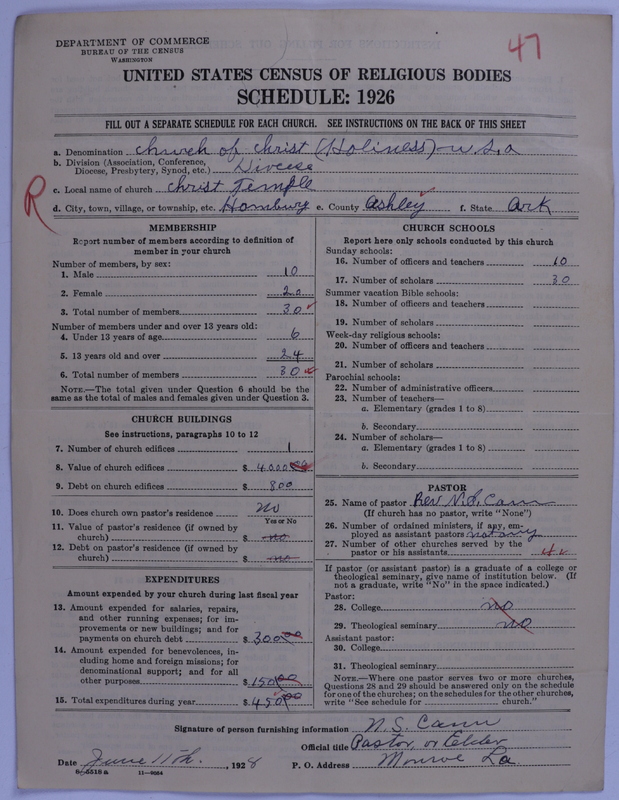 DEPARTMENT OF COMMERCE
BUREAU OF THE CENSUS
WASHINGTON
47
UNITED STATES CENSUS OF RELIGIOUS BODIES
SCHEDULE: 1926
FILL OUT A SEPARATE SCHEDULE FOR EACH CHURCH. SEE INSTRUCTIONS ON THE BACK OF THIS SHEET
a. Denomination Church of Christ (Holiness) U.S.a
b. Division (Association, Conference, Diocese, Presbytery, Synod, etc.) Diocese
c. Local name of church Christ Temple
R
d. City, town, village, or township, etc. Hamburg e. County Ashley f. State Ark
MEMBERSHIP
Report number of members according to definition of
member in your church
Number of members, by sex:
1. Male 10
2. Female 20
3. Total number of members 30
Number of members under and over 13 years old:
4. Under 13 years of age 6
5. 13 years old and over 24
6. Total number of members 30
NOTE.—The total given under Question 6 should be the
same as the total of males and females given under Question 3.
CHURCH BUILDINGS
See instructions, paragraphs 10 to 12
7. Number of church edifices 1
8. Value of church edifices $ 4000 00
9. Debt on church edifices $ 800
10. Does church own pastor's residence no
Yes or No
11. Value of pastor's residence (if owned by
church) $ no
12. Debt on pastor's residence (if owned by
church) $ no
EXPENDITURES
Amount expended by your church during last fiscal year
13. Amount expended for salaries, repairs,
and other running expenses; for im-
provements or new buildings; and for
payments on church debt $ 300 00
14. Amount expended for benevolences, in-
cluding home and foreign missions; for
denominational support; and for all
other purposes $ 150 00
15. Total expenditures during year $ 450 00
CHURCH SCHOOLS
Report here only schools conducted by this church
Sunday schools:
16. Number of officers and teachers 10
17. Number of scholars 30
Summer vacation Bible schools:
18. Number of officers and teachers
19. Number of scholars
Week-day religious schools:
20. Number of officers and teachers
21. Number of scholars
Parochial schools:
22. Number of administrative officers
23. Number of teachers—
a. Elementary (grades 1 to 8)
b. Secondary
24. Number of scholars—
a. Elementary (grades 1 to 8)
b. Secondary
PASTOR
25. Name of pastor Rev. N.S. Cann
(If church has no pastor, write "None")
26. Number of ordained ministers, if any, em-
ployed as assistant pastors not any
27. Number of other churches served by the
pastor or his assistants
If pastor (or assistant pastor) is a graduate of a college or
theological seminary, give name of institution below. (If
not a graduate, write "No" in the space indicated.)
Pastor:
28. College no
29. Theological seminary no
Assistant pastor:
30. College
31. Theological seminary
NOTE.—Where one pastor serves two or more churches,
Questions 28 and 29 should be answered only on the schedule
for one of the churches; on the schedules for the other churches,
write "See schedule for church."
Signature of person furnishing information N. S. Cann
Official title Pastor, or Elder
Date June 11th, 1928 P. O. Address Monroe La.
11—9064